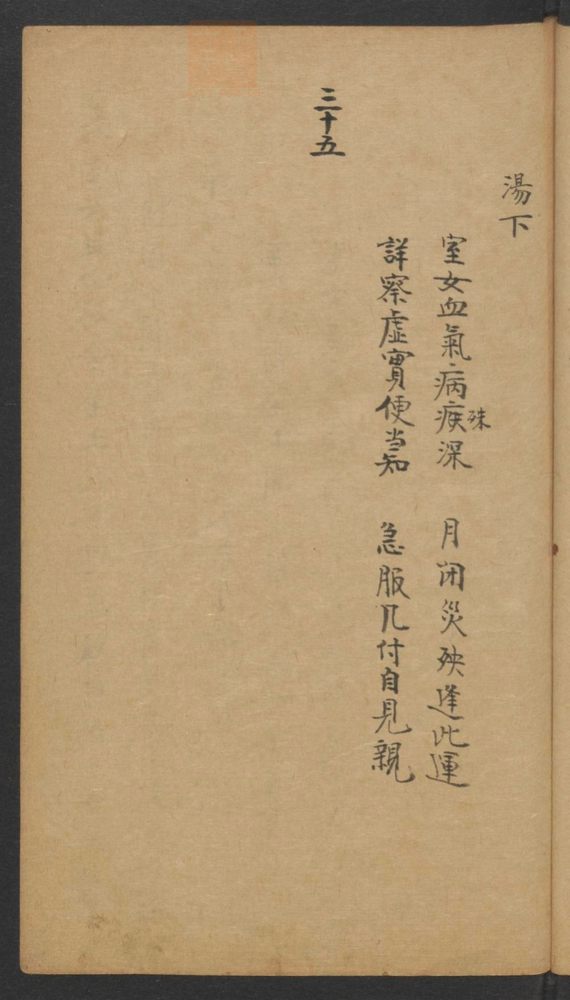 湯下
室女血氣病疾深　月閉災殃逢此運
殊
詳察虛實便当知　急服几付自見親
三十五